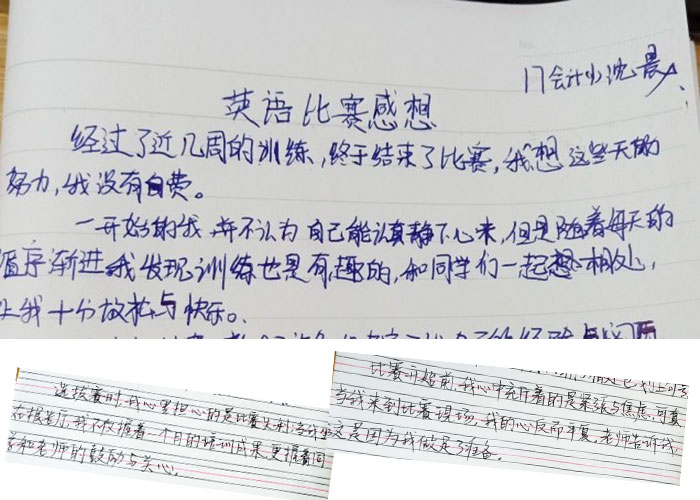 17会计小沈晨
英语比赛感想
经过了近几周的训练,终于结束了比赛,我想这些天的
努力,我没有白费。
一开始的我,并不认为自己能认真静下心来,但是随着每天的
循序渐进我发现训练也是有趣的,和同学们一起想相处,
让我十分放松与快乐。
选拔赛时,我心里担心的是比赛失利,当我坐
在报告厅,我不仅握着一个月的培训成果,更握着同
学和老师的鼓励与关心。
比赛开始前,我心中充斥着的是紧张与焦虑,可
当我来到比赛现场,我的心反而平复,老师告诉我,
这是因为我做足了准备。